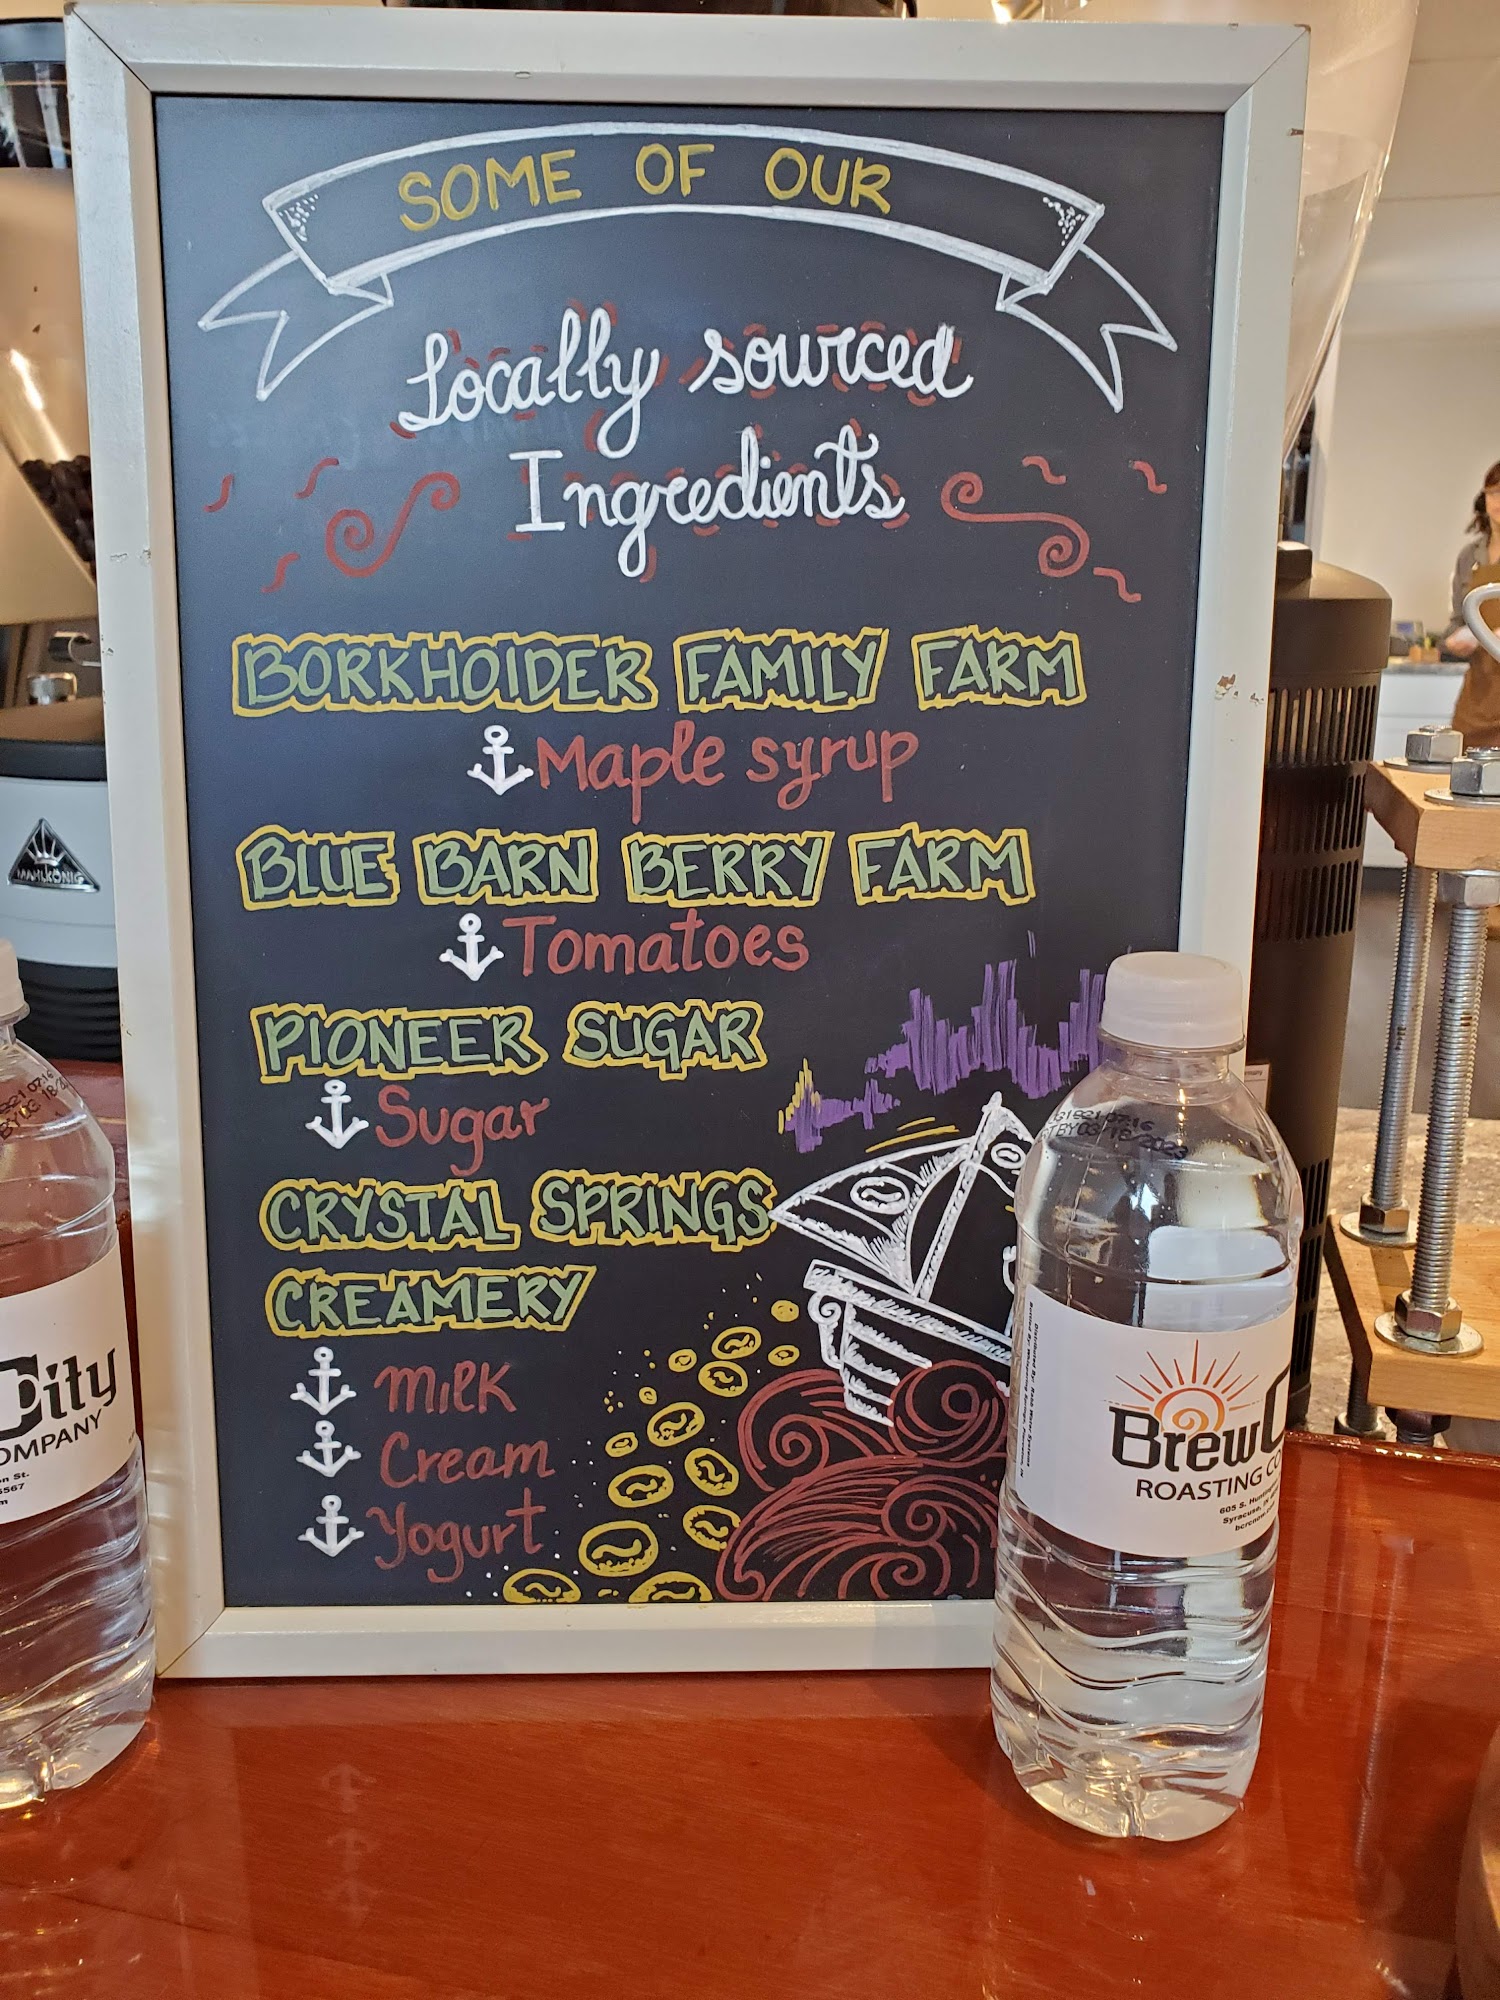 SOME OF OUR
Locally sourced
Ingredients
BORKHOIDER FAMILY FARM
Maple syrup
BLUE BARN BERRY FARM
Tomatoes
PIONEER SUGAR
Sugar
CRYSTAL SPRINGS
CREAMERY
Milk
Cream
Yogurt
MAHLKÖNIG
City
OMPANY
on St.
6567
m
BrewC
ROASTING CO
605 S. Hunting
Syracuse, IN
bcrcnow.co